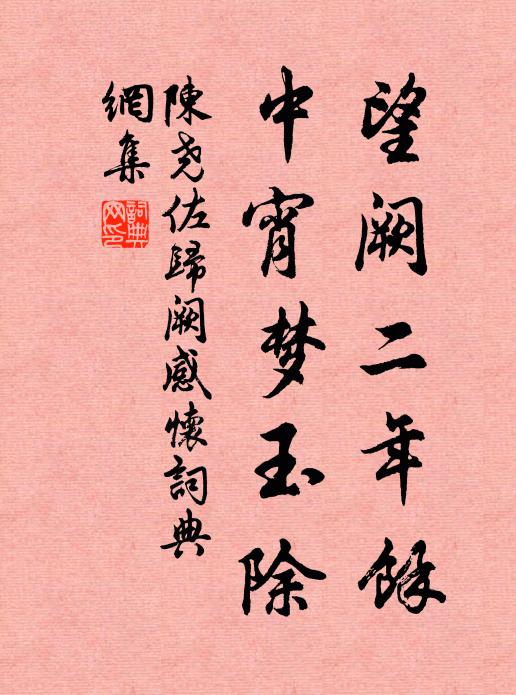 望阙二年餘
中宵梦玉除
陳尧佐歸阙感懷詞典
網集
詞典
网印